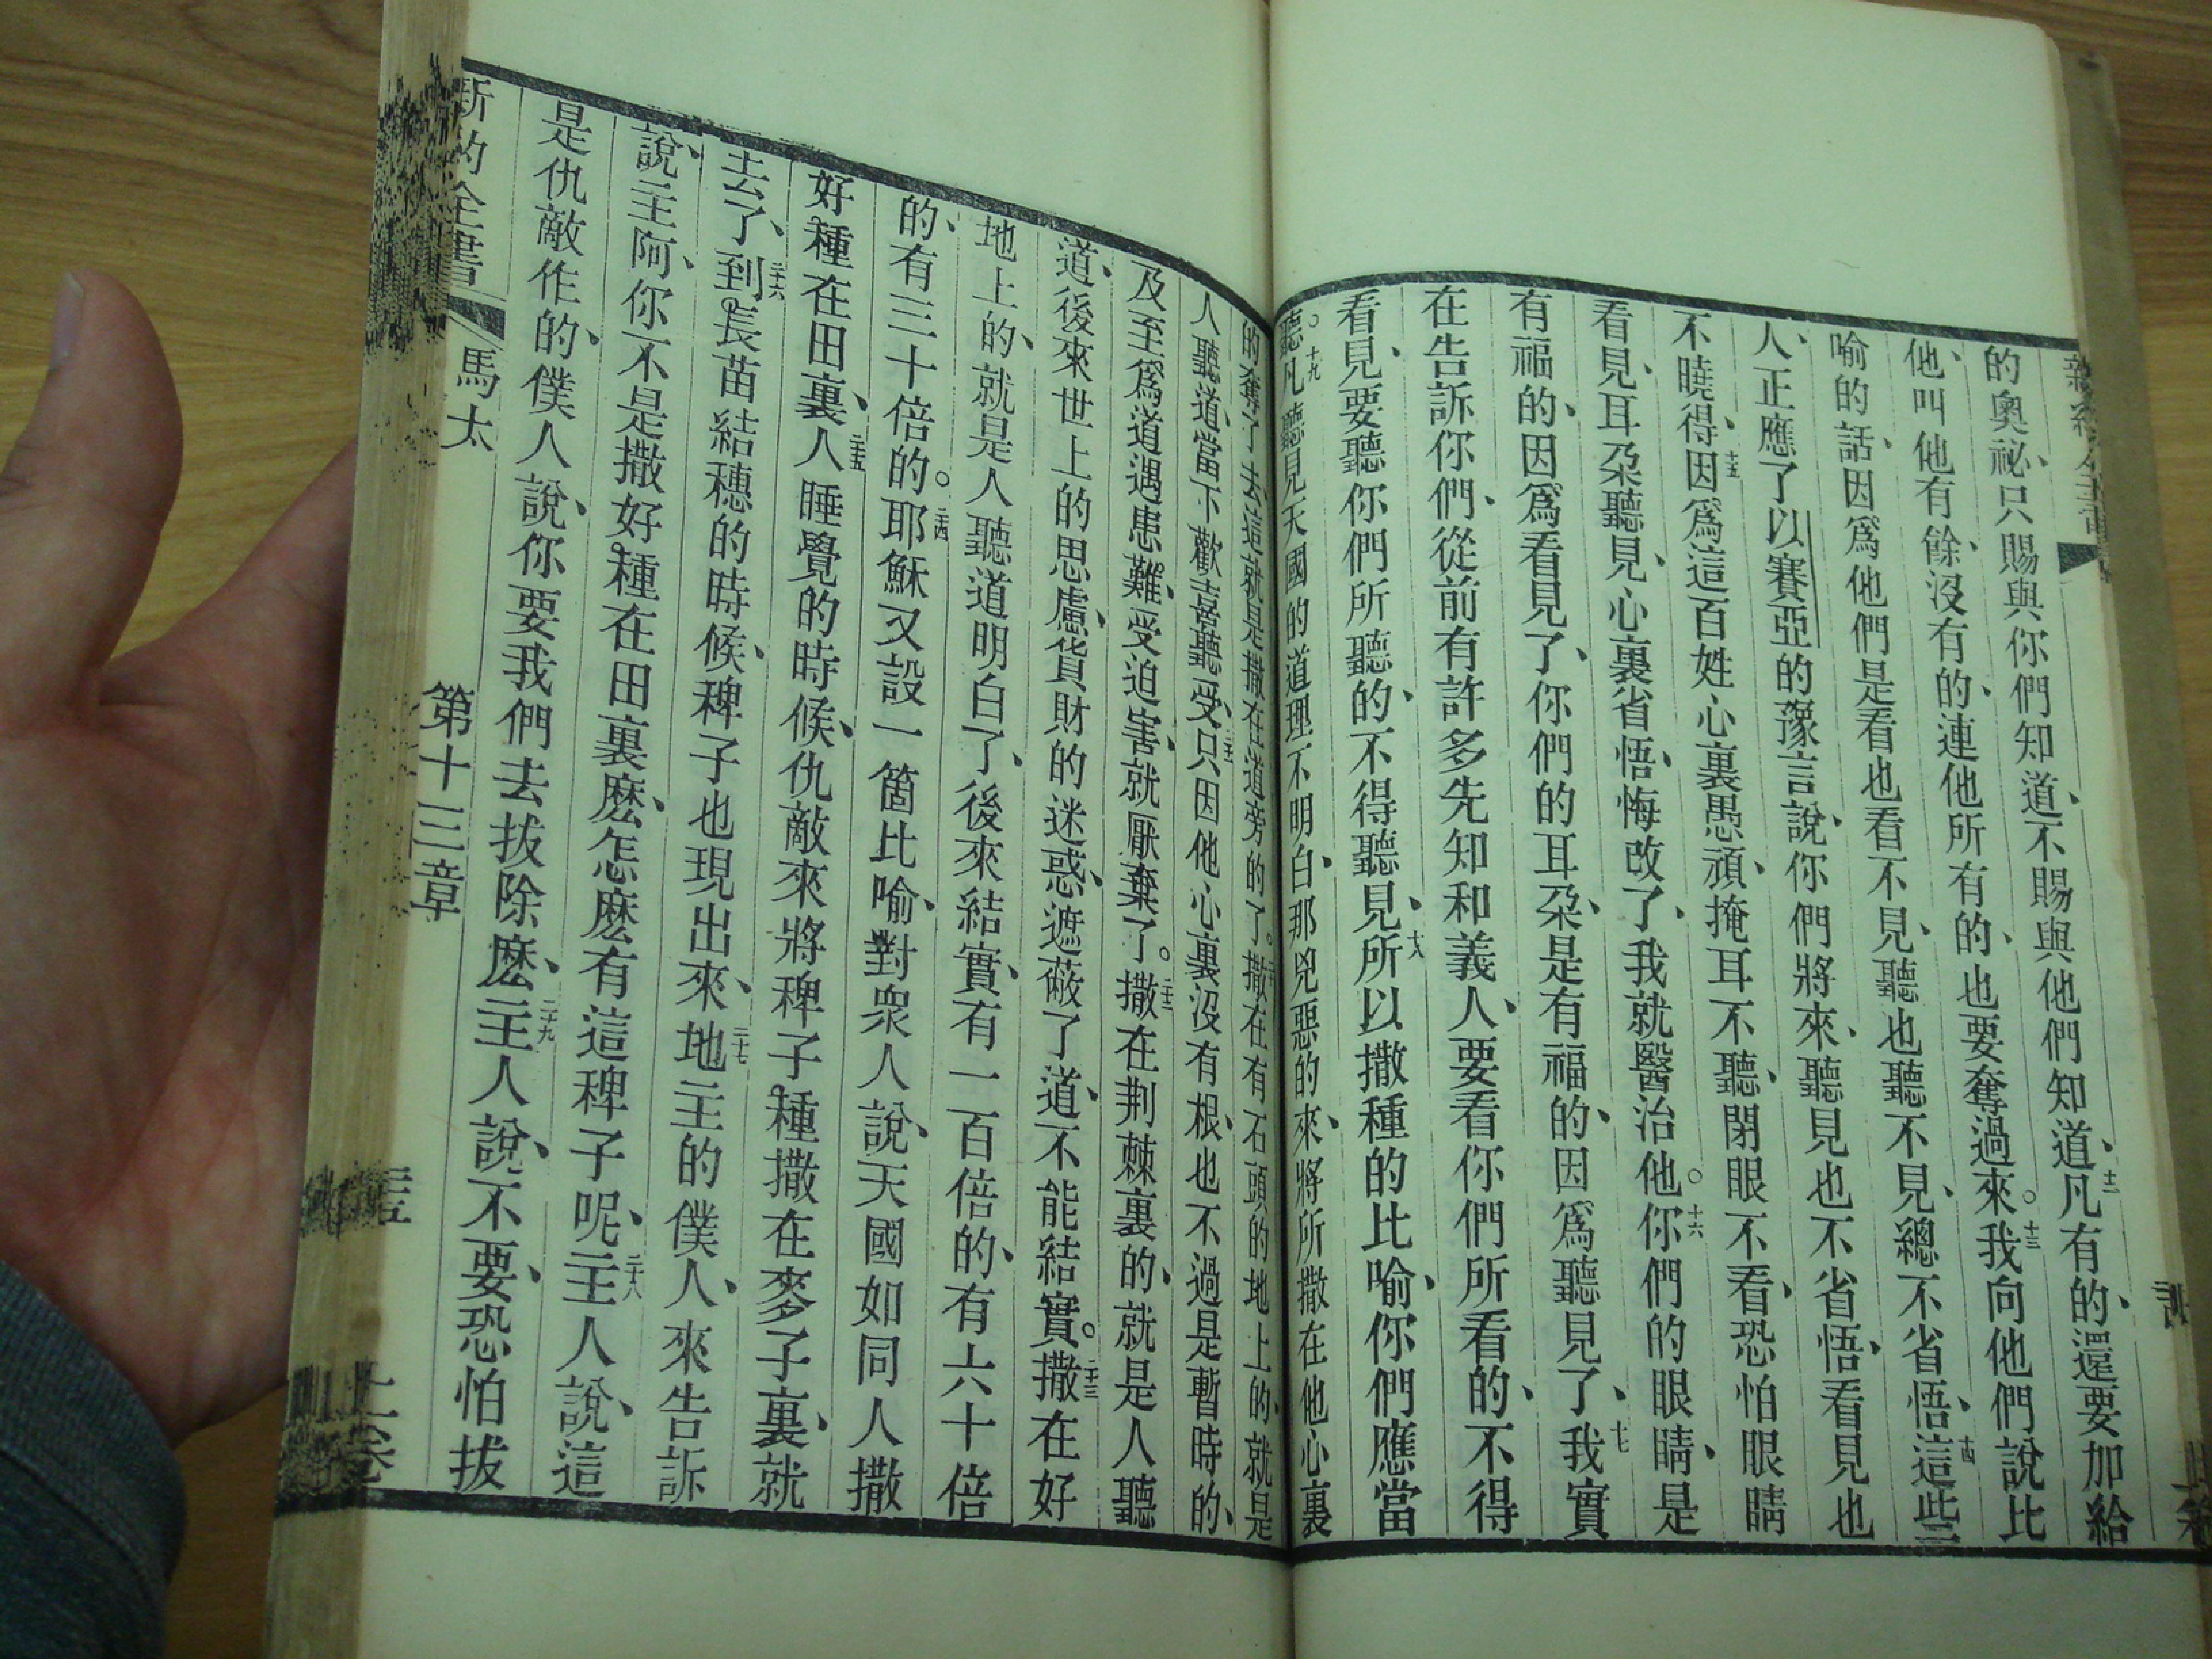 的奧祕、只賜與你們知道、不賜與他們知道、十二凡有的、還要加給
他、叫他有餘、沒有的、連他所有的、也要奪過來。十三我向他們說比
喻的話、因爲他們是看也看不見、聽也聽不見、總不省悟、十四這些
人、正應了以賽亞的豫言說、你們將來、聽見也不省悟、看見也
不曉得、十五因爲這百姓心裏愚頑、掩耳不聽、閉眼不看、恐怕眼睛
看見、耳朶聽見、心裏省悟、悔改了、我就醫治他。十六你們的眼睛、是
有福的、因爲看見了、你們的耳朶、是有福的、因爲聽見了、十七我實
在告訴你們、從前有許多先知和義人、要看你們所看的、不得
看見、要聽你們所聽的、不得聽見、十八所以撒種的比喻、你們應當
聽。十九凡聽見天國的道理不明白、那兇惡的來、將所撒在他心裏
的奪了去、這就是撒在道旁的了。二十撒在有石頭的地上的、就是
人聽道、當下歡喜聽受、二十一只因他心裏沒有根、也不過是暫時的、
及至爲道遇患難、受迫害、就厭棄了。二十二撒在荆棘裏的、就是人聽
道、後來世上的思慮、貨財的迷惑、遮蔽了道、不能結實。二十三撒在好
地上的、就是人聽道明白了、後來結實、有一百倍的、有六十倍
的、有三十倍的。二十四耶穌又設一箇比喻、對衆人說、天國如同人撒
好種在田裏、二十五人睡覺的時候、仇敵來將稗子種撒在麥子裏、就
去了、二十六到長苗結穗的時候、稗子也現出來、二十七地主的僕人、來告訴
說、主阿、你不是撒好種在田裏麽、怎麽有這稗子呢、二十八主人說、這
是仇敵作的、僕人說、你要我們去拔除麽、二十九主人說、不要、恐怕拔
新約全書 馬太 第十三章 上卷